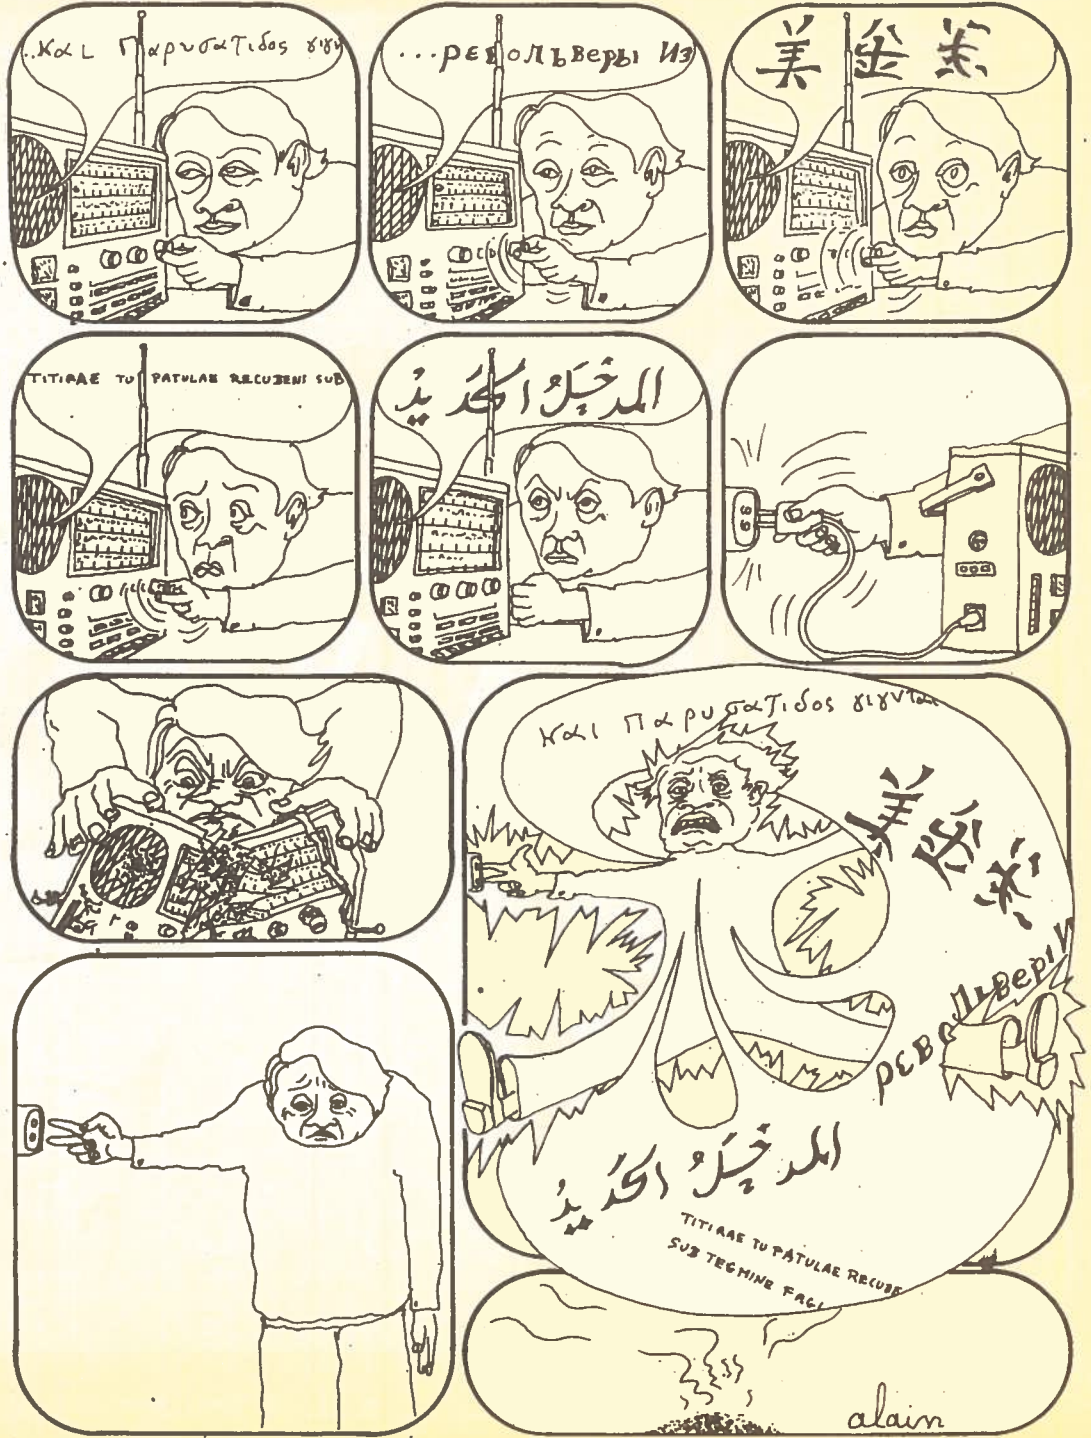 ..και Παρυσατιδος γιγν
...револьверы Из
美 金
TITIRAE TU PATULAE RECUBENS SUB
المدخل الحديد
και Παρυσατιδος γιγνται
美 金
револьверы И
المدخل الحديد
TITIRAE TU PATULAE RECUBE
SUB TEGMINE FAGI
alain